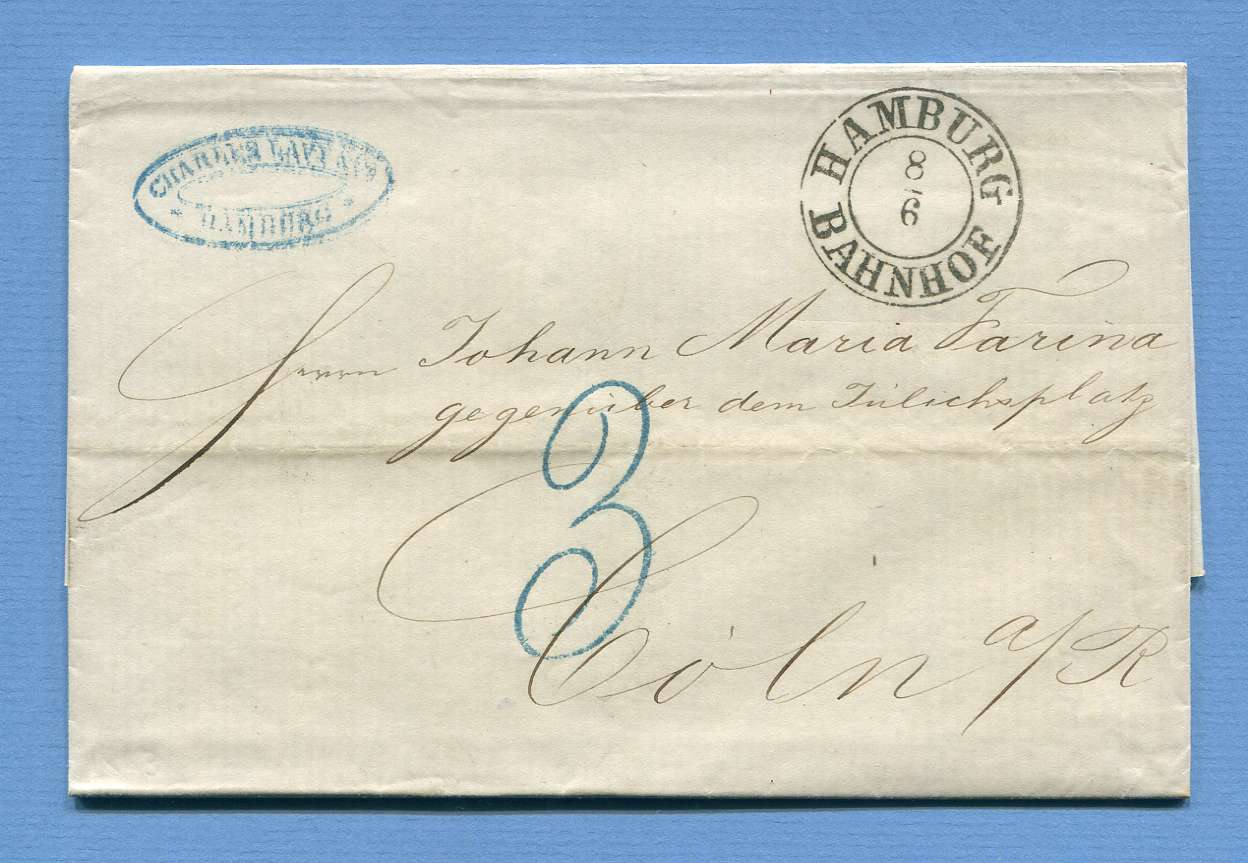 CHARLES LAVY & Co
* HAMBURG *
HAMBURG
8
6
BAHNHOF
Herrn Johann Maria Farina
gegenüber dem Jülichsplatz
3
Cöln a/R